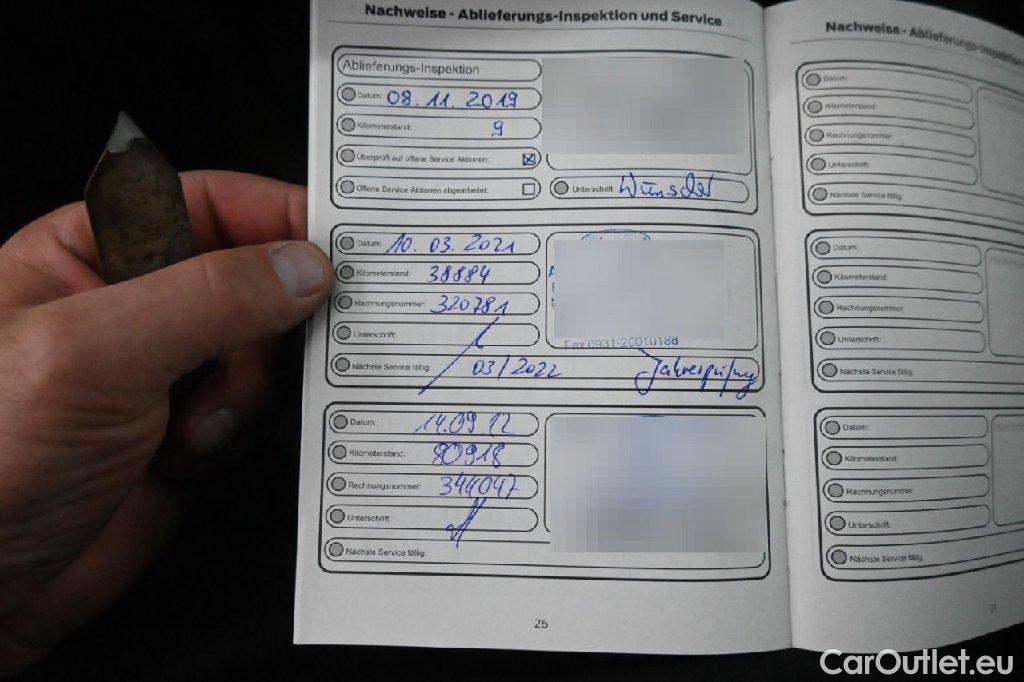 Nachweise - Ablieferungs-Inspektion und Service
Ablieferungs-Inspektion
Datum: 08.11.2019
Kilometerstand: 9
Überprüft auf offene Service Aktionen:
Offene Service Aktionen abgearbeitet:
Unterschrift:
Datum: 10.03.2021
Kilometerstand: 38884
Rechnungsnummer: 320781
Unterschrift:
Fax 0931-20010188
Nächste Service fällig: 03/2022
Jahresprüfung
Datum: 14.09
Kilometerstand: 80918
Rechnungsnummer: 344047
Unterschrift:
Nächste Service fällig:
26
Nachweise - Ablieferungs-Inspektion
Datum:
Kilometerstand:
Rechnungsnummer:
Unterschrift:
Nächste Service fällig:
Datum:
Kilometerstand:
Rechnungsnummer:
Unterschrift:
Nächste Service fällig:
Datum:
Kilometerstand:
Rechnungsnummer:
Unterschrift:
Nächste Service fällig:
CarOutlet.eu